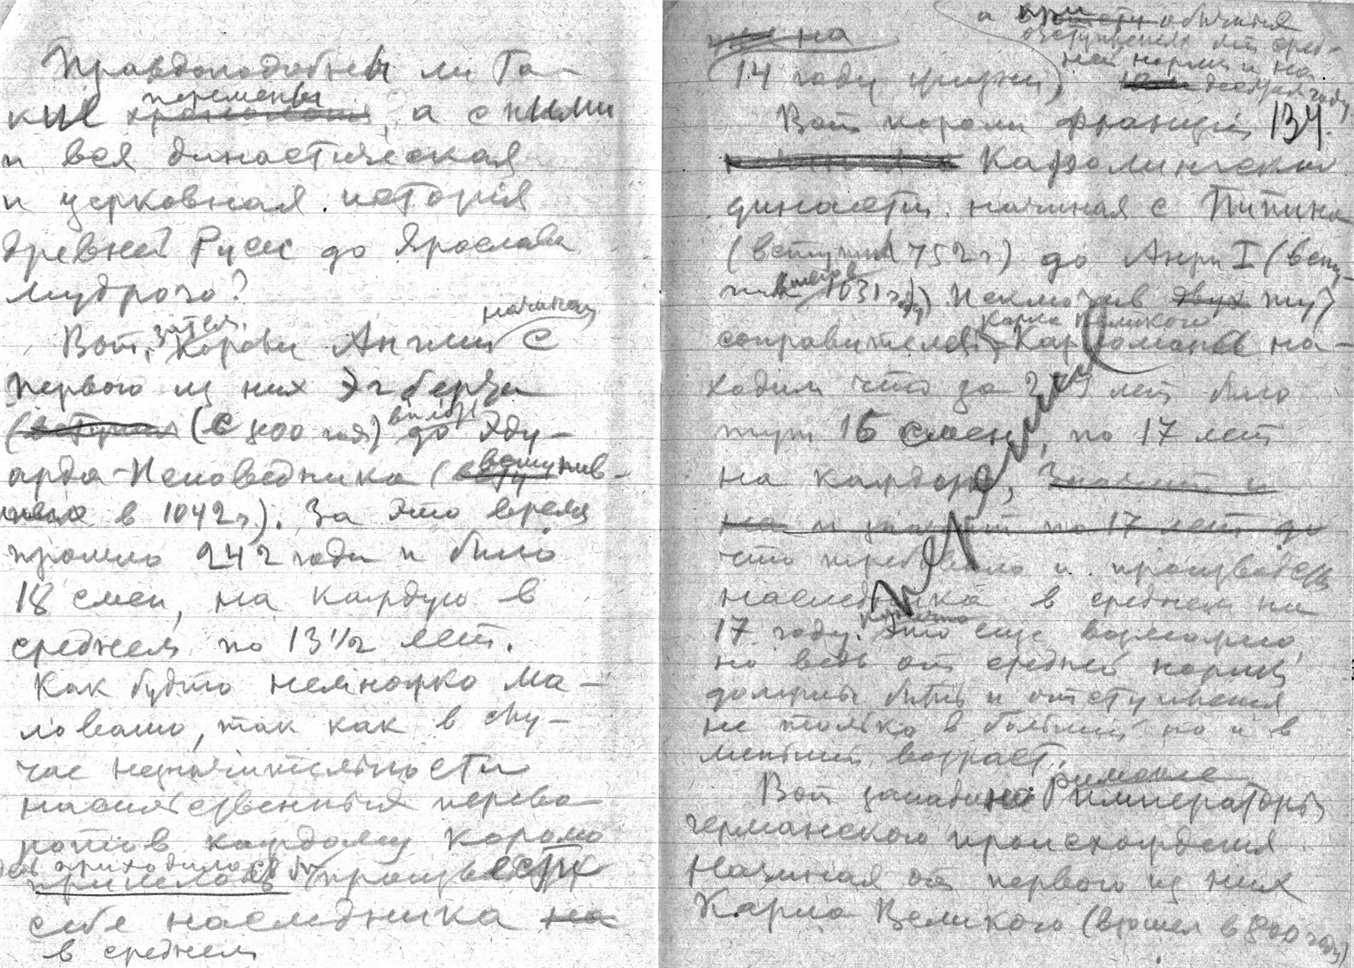 Правдоподобны ли та-
кие перемены, а с ними
и вся династическая
и церковная история
древней Руси до Ярослава
Мудрого?
начиная
Вот, затем, короли Англии с
первого из них Эгберта
(с 800 года) вплоть до Эду-
арда-Исповедника (вступив-
в 1042 г.). За это время
прошло 242 года и было
18 смен, на каждую в
среднем по 13 1/2 лет.
Как будто немножко ма-
ловато, так как в слу-
чае незначительности
насильственных перево-
ротов каждому королю
приходилось бы
произвести
себе наследника
в среднем
на
14 году жизни)
а при обычных
отступлениях от сред-
ней нормы и на
десятом году
Вот короли Франции 134.
Каролингской
династии, начиная с Пипина
(вступил 752 г.) до Анри I (всту-
1031 году). Исключив тут
Карла Великого
соправителя Карломана на-
ходим что за 279 лет было
тут 16 смен, по 17 лет
на каждого,
что требовало и производить
наследника в среднем на
17 году. Это еще возможно,
но ведь от средней нормы
должны быть и отступления
не только в больший но и в
меньший возраст.
Вот западные Римские
императоры
германского происхождения
Начиная от первого из них
Карла Великого (в 800 году)